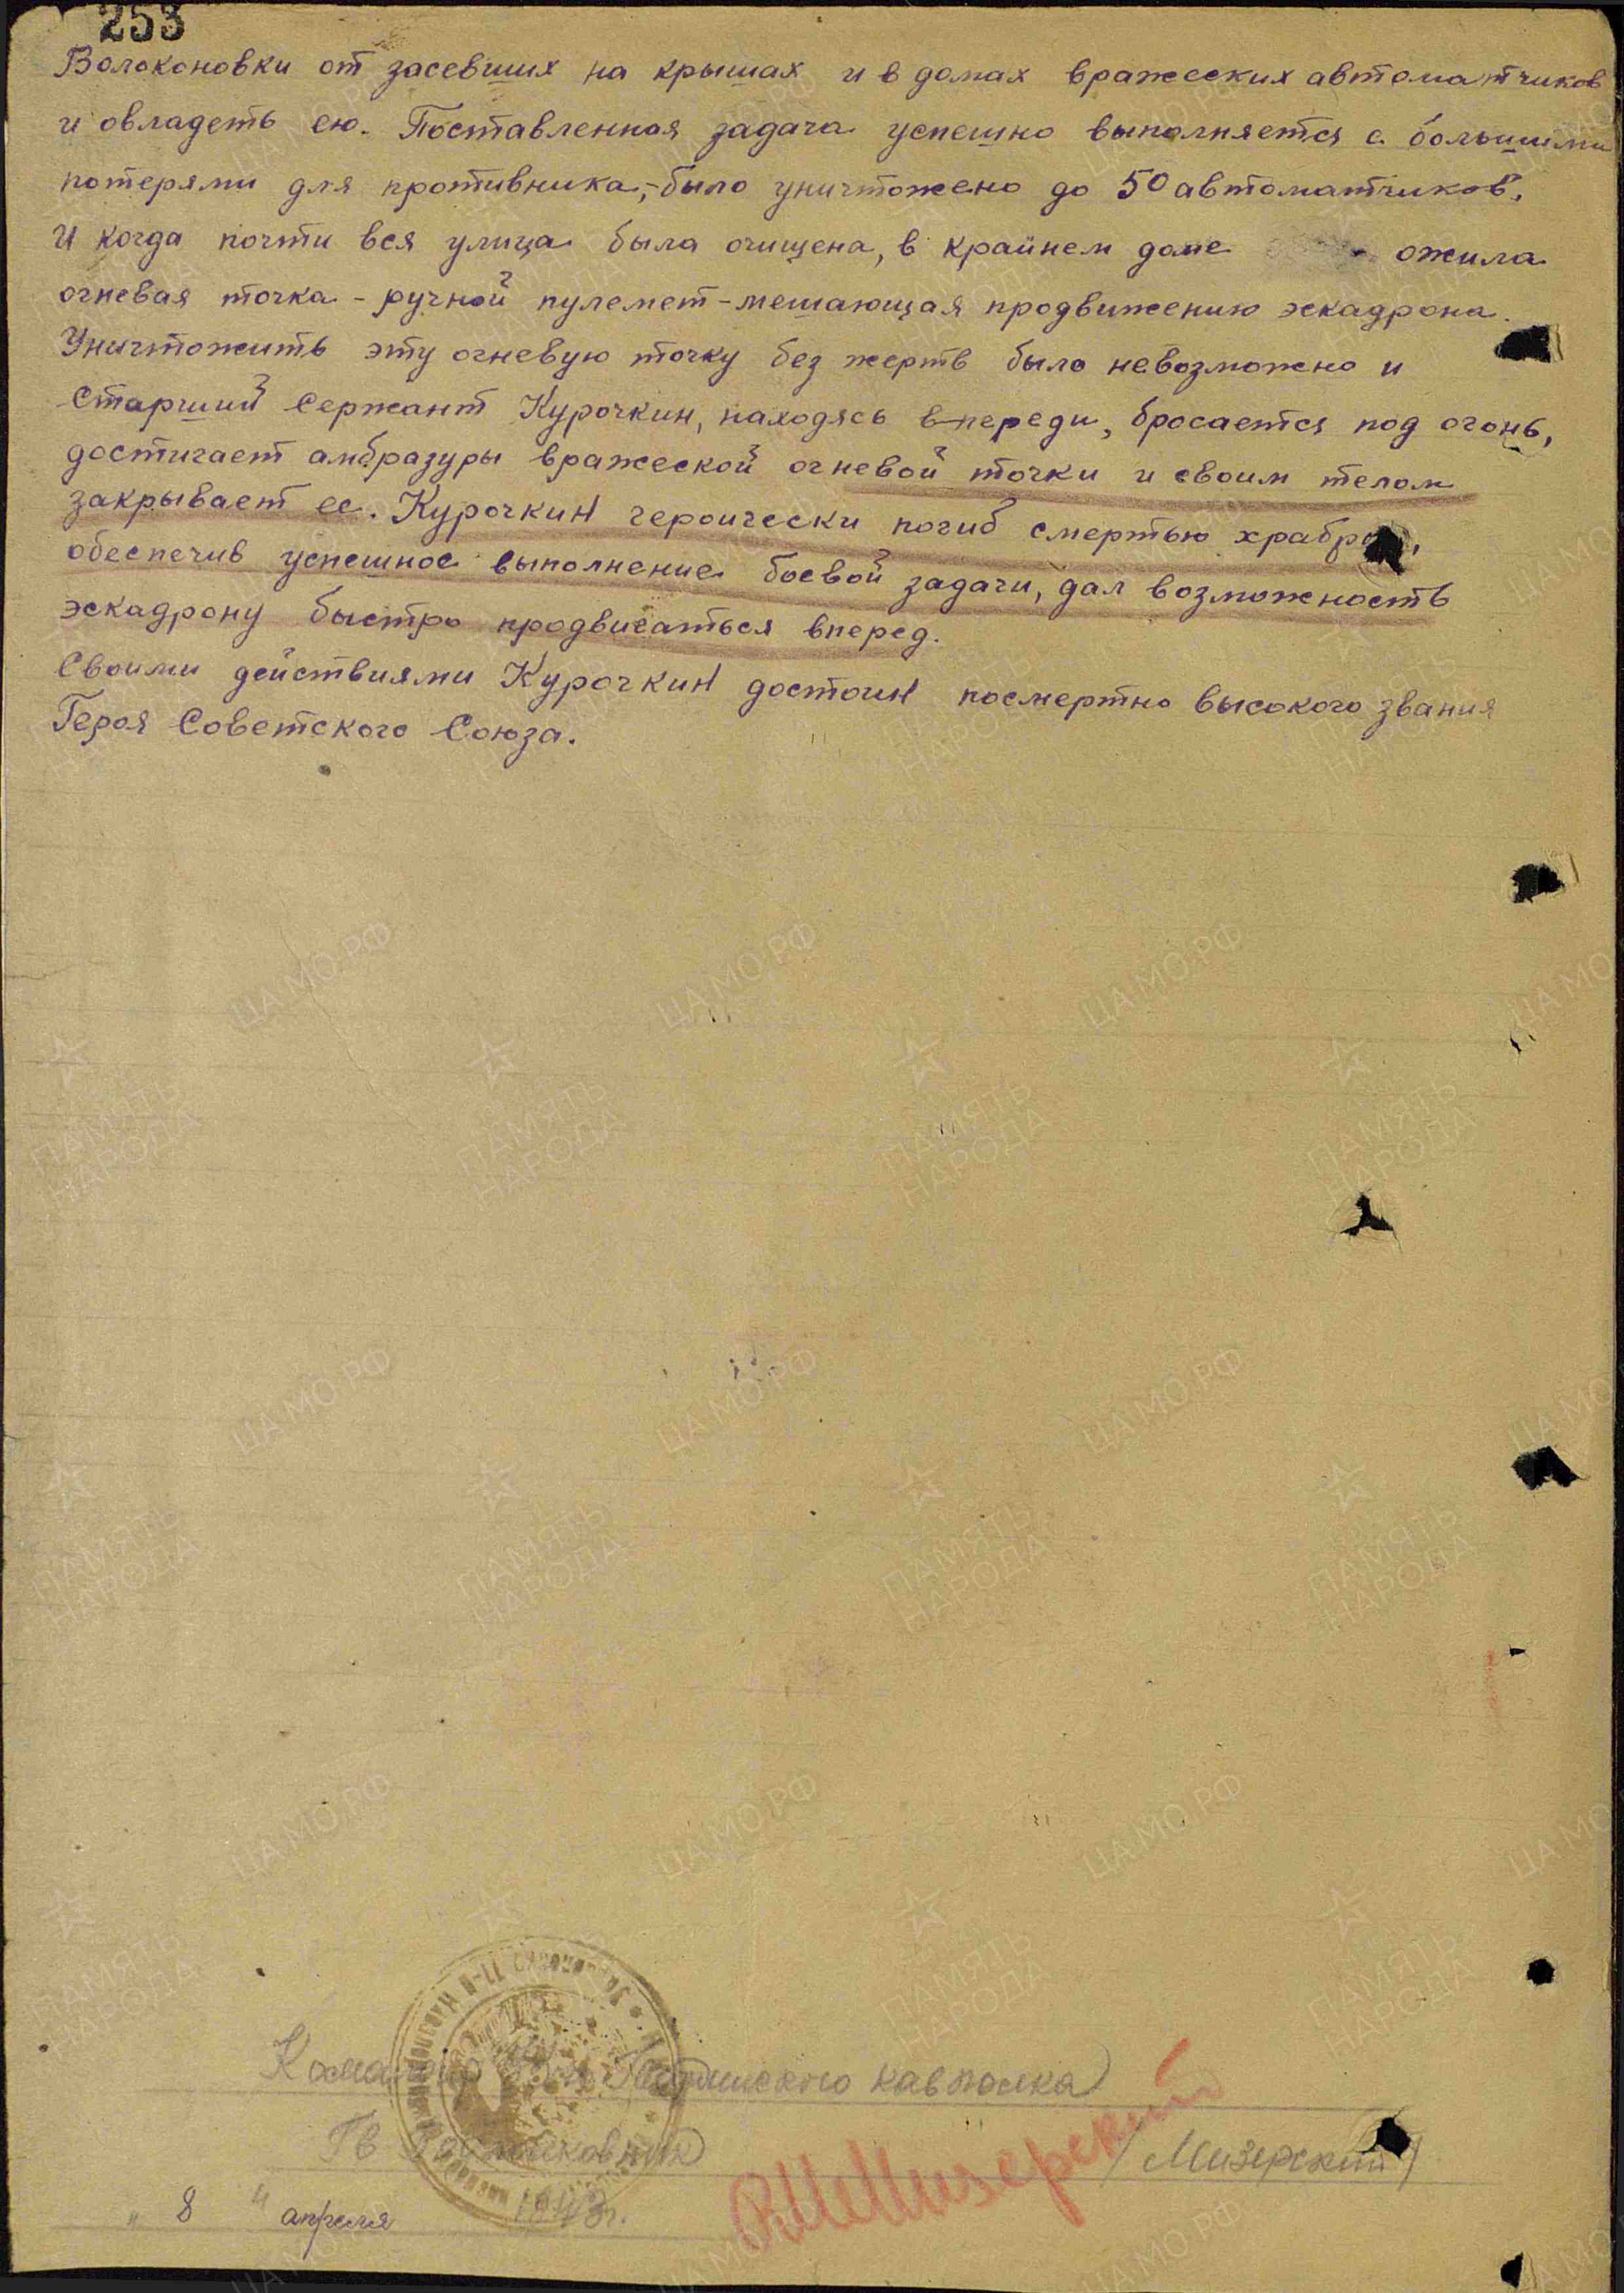 253
Волоконовки от засевших на крышах и в домах вражеских автоматчиков
и овладеть ею. Поставленная задача успешно выполняется с большими
потерями для противника,-было уничтожено до 50 автоматчиков.
И когда почти вся улица была очищена, в крайнем доме ожила
огневая точка - ручной пулемет - мешающая продвижению эскадрона.
Уничтожить эту огневую точку без жертв было невозможно и
Старший Сержант Курочкин, находясь впереди, бросается под огонь,
достигает амбразуры вражеской огневой точки и своим телом
закрывает ее. Курочкин героически погиб смертью
обеспечив успешное выполнение боевой задачи, дал возможность
эскадрону быстро продвигаться вперед.
Своими действиями Курочкин достоин посмертно высокого звания
Героя Советского Союза.
Командир кавполка
Гв Подполковник /Мизерский/
Мизерский
"8" апреля 1943г.
ЦАМО.РФ
ПАМЯТЬ
НАРОДА